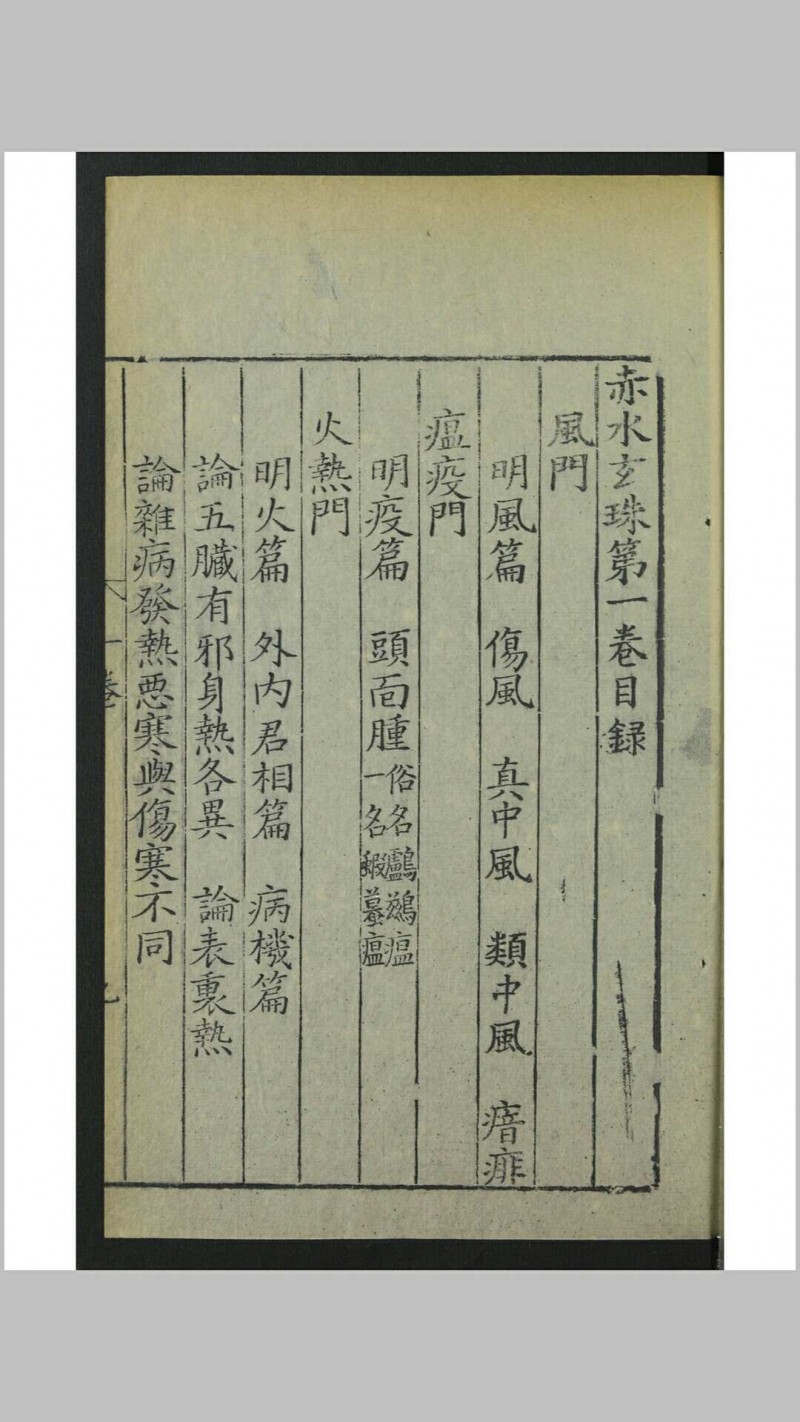 赤水玄珠第一卷目録
風門
明風篇　傷風　真中風　類中風　瘖痱
瘟疫門
明疫篇　頭面腫俗名鸕鷀瘟
一名蝦蟇瘟
火熱門
明火篇　外内君相篇　病機篇
論五臟有邪身熱各異　論表裏熱
論雜病發熱惡寒與傷寒不同
一卷